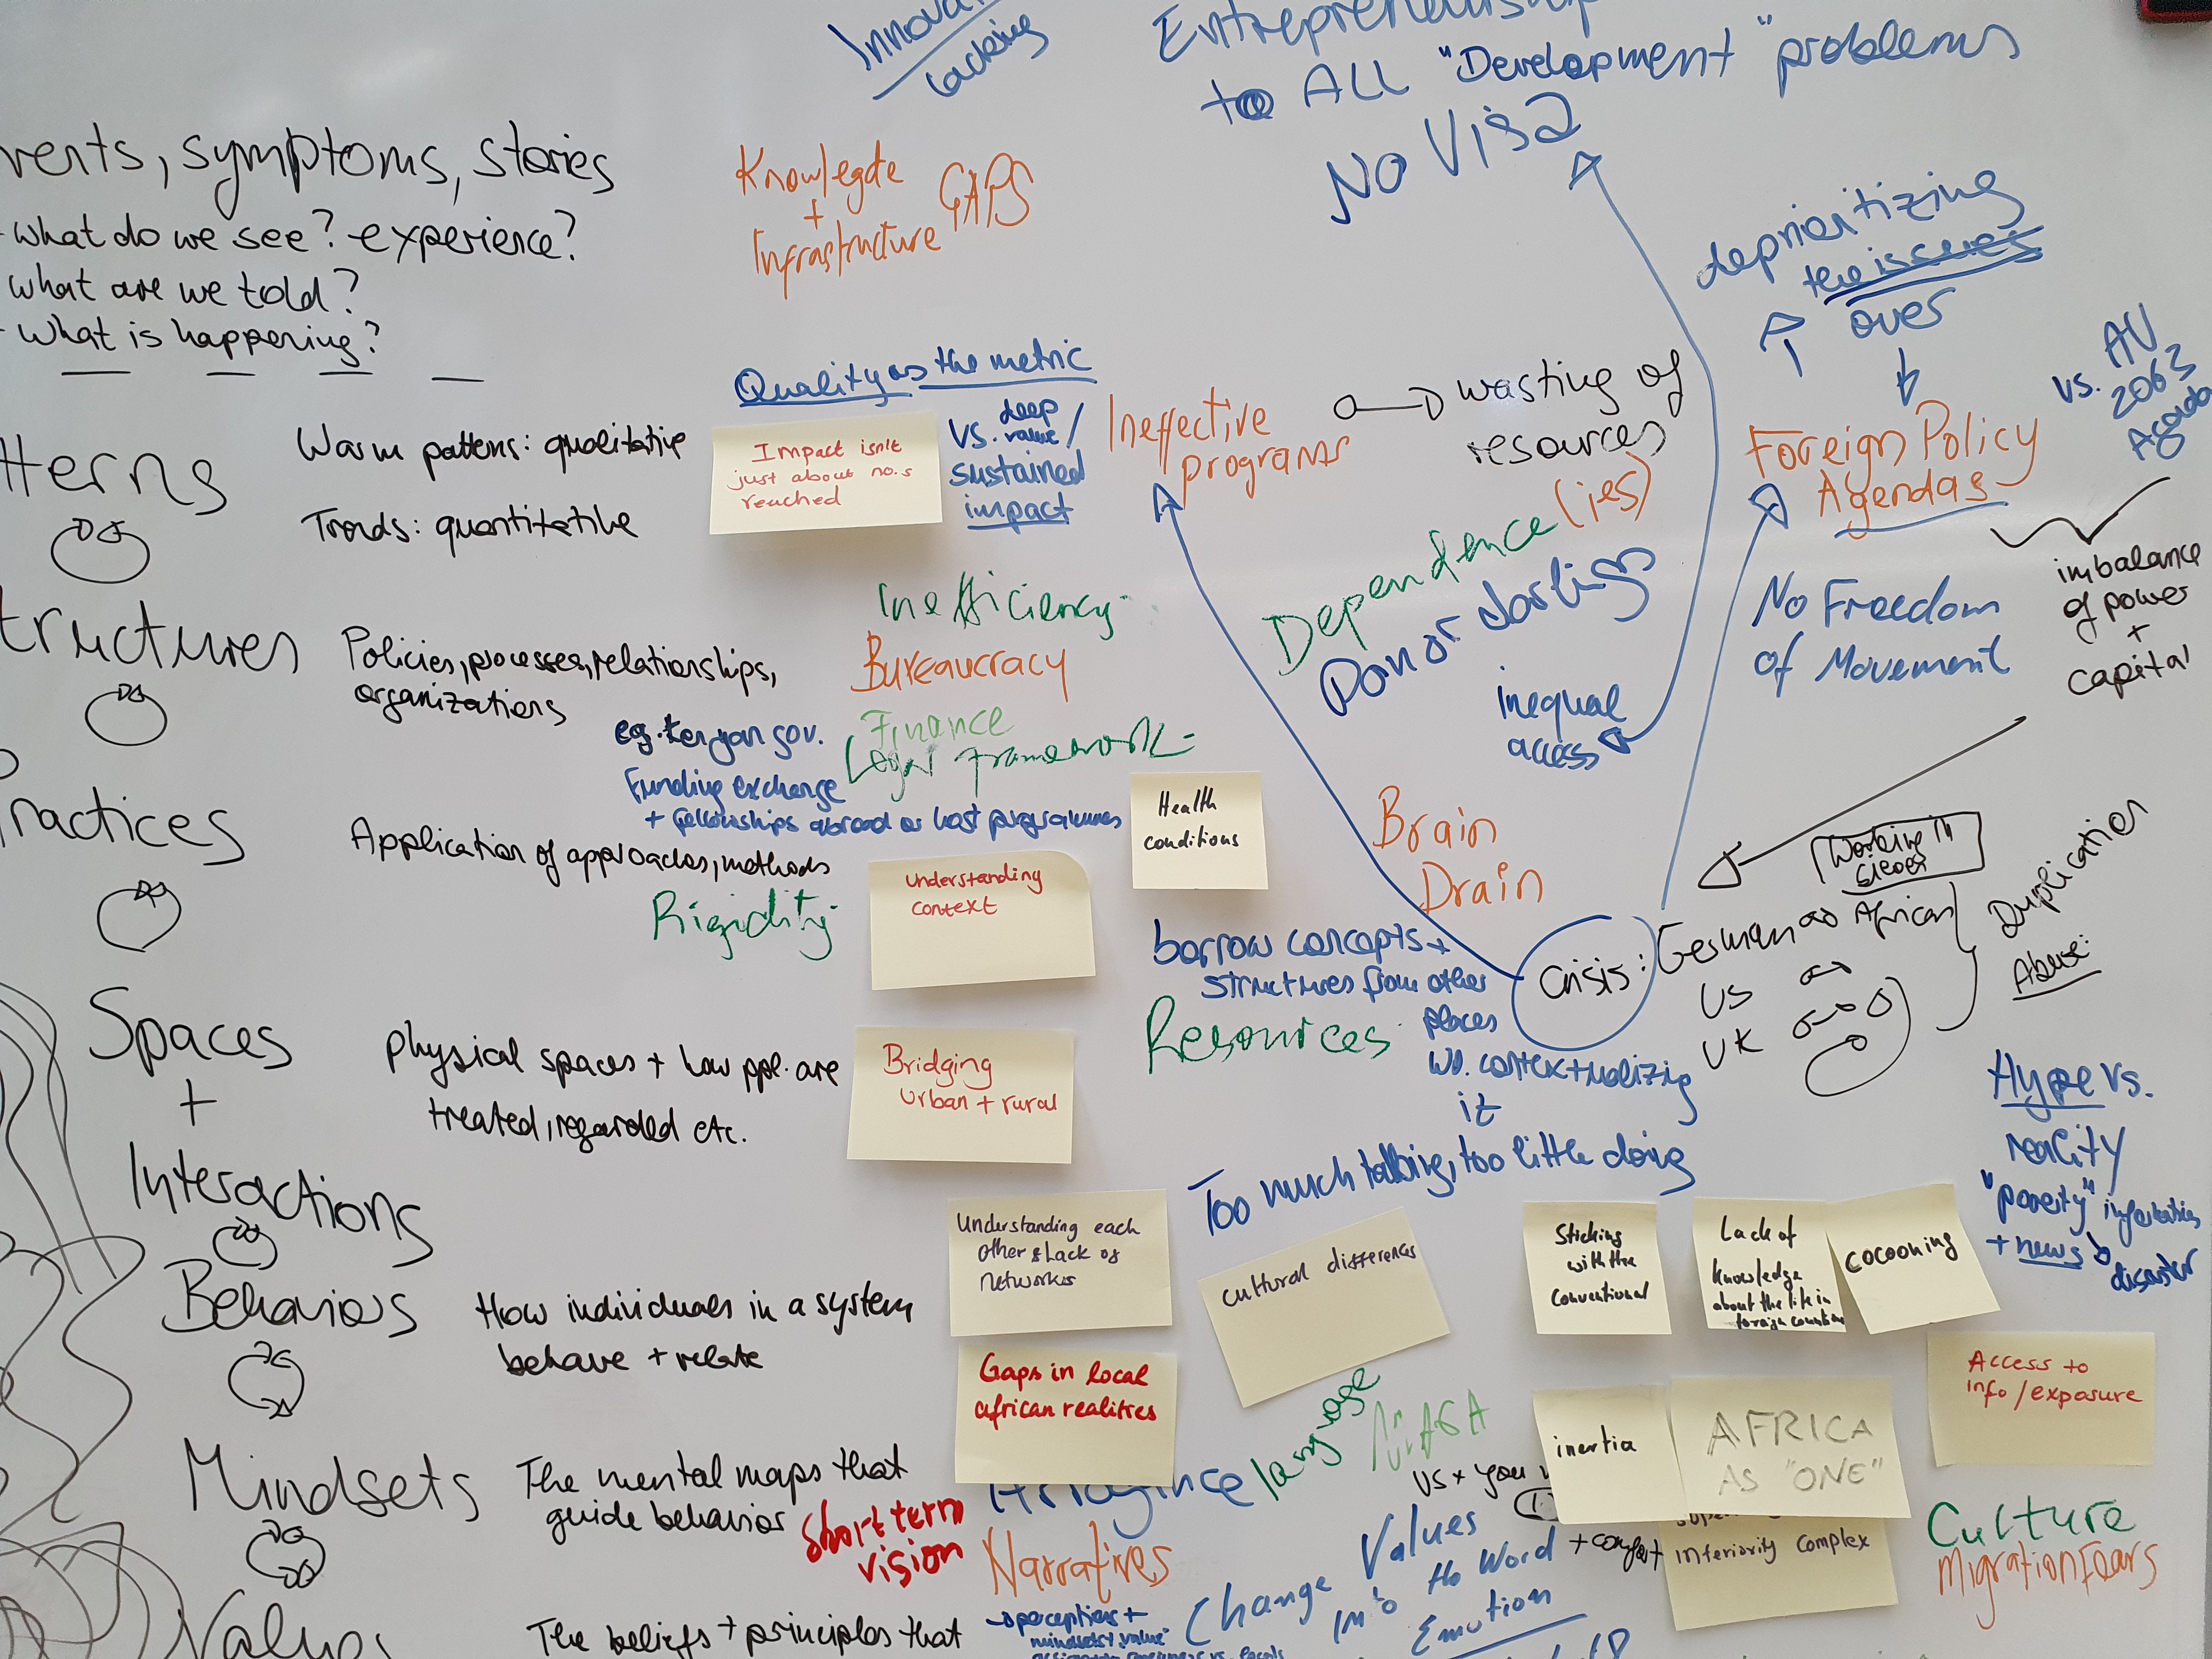 lacking
Entrepreneurship
to ALL "Development" problems
No Visa
vents, symptoms, stories
- What do we see? - experience?
what are we told?
- What is happening?
Knowlegde
+
Infrastructure
GAPS
deprioritizing
the issues
over
vs. AU
2063
Agenda
Quality as the metric
Impact isn't
just about no.s
reached
vs. deep
value /
sustained
impact
Ineffective
programs
wasting of
resources
Foreign Policy
Agendas
tterns
Warm patterns: qualitative
Trends: quantitative
Dependence (ies)
Donor darlings
inequal
access
No Freedom
of Movement
imbalance
of power
+
capital
Inefficiency
Bureaucracy
Finance
Legal framework
tructures
Policies, processes, relationships,
organizations
eg. Kenyan gov.
Funding exchange
+ fellowships abroad or host programmes
Health
conditions
ractices
Application of approaches, methods
Rigidity
Understanding
context
Brain
Drain
borrow concepts +
structures from other
places
wo. contextualizing
it
Resources
Crisis:
German
African
US
UK
Working in
Duplication
Abuse:
Spaces
+
Interactions
physical spaces + how ppl. are
treated, regarded etc.
Bridging
urban + rural
Too much talking, too little doing
Hype vs.
reality
"poverty"
+ news
disaster
Understanding each
other & Lack of
networks
cultural differences
Sticking
with the
conventional
Lack of
knowledge
about the life in
foreign countries
cocooning
Behaviors
How individuals in a system
behave + relate
Gaps in local
african realities
Access to
info/exposure
language
MAGA
us + you
inertia
AFRICA
AS "ONE"
inferiority complex
Mindsets
The mental maps that
guide behavior
Short term
vision
Narratives
Culture
Migration Fears
Change Values
into the Word
Emotion
Values
The beliefs + principles that
perceptions +